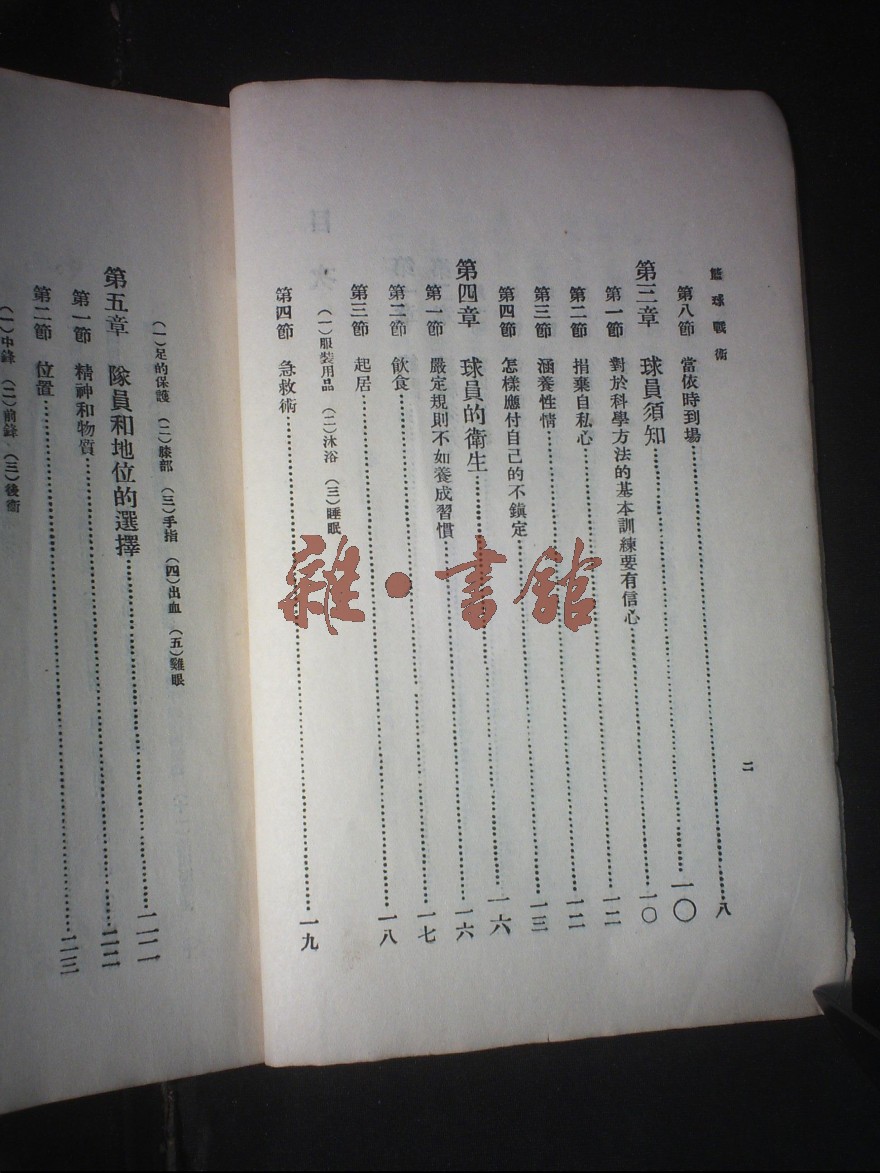 籃球戰術
二
第八節 當依時到場……八
第三章 球員須知……一〇
第一節 對於科學方法的基本訓練要有信心……一〇
第二節 捐棄自私心……一二
第三節 涵養性情……一二
第四節 怎樣應付自己的不鎮定……一三
第四章 球員的衛生……一六
第一節 嚴定規則不如養成習慣……一六
第二節 飲食……一七
第三節 起居……一八
(一)服裝用品 (二)沐浴 (三)睡眠
第四節 急救術……一九
(一)足的保護 (二)膝部 (三)手指 (四)出血 (五)雞眼
第五章 隊員和地位的選擇……二二
第一節 精神和物質……二二
第二節 位置……二三
(一)中鋒 (二)前鋒 (三)後衛
雜·書館